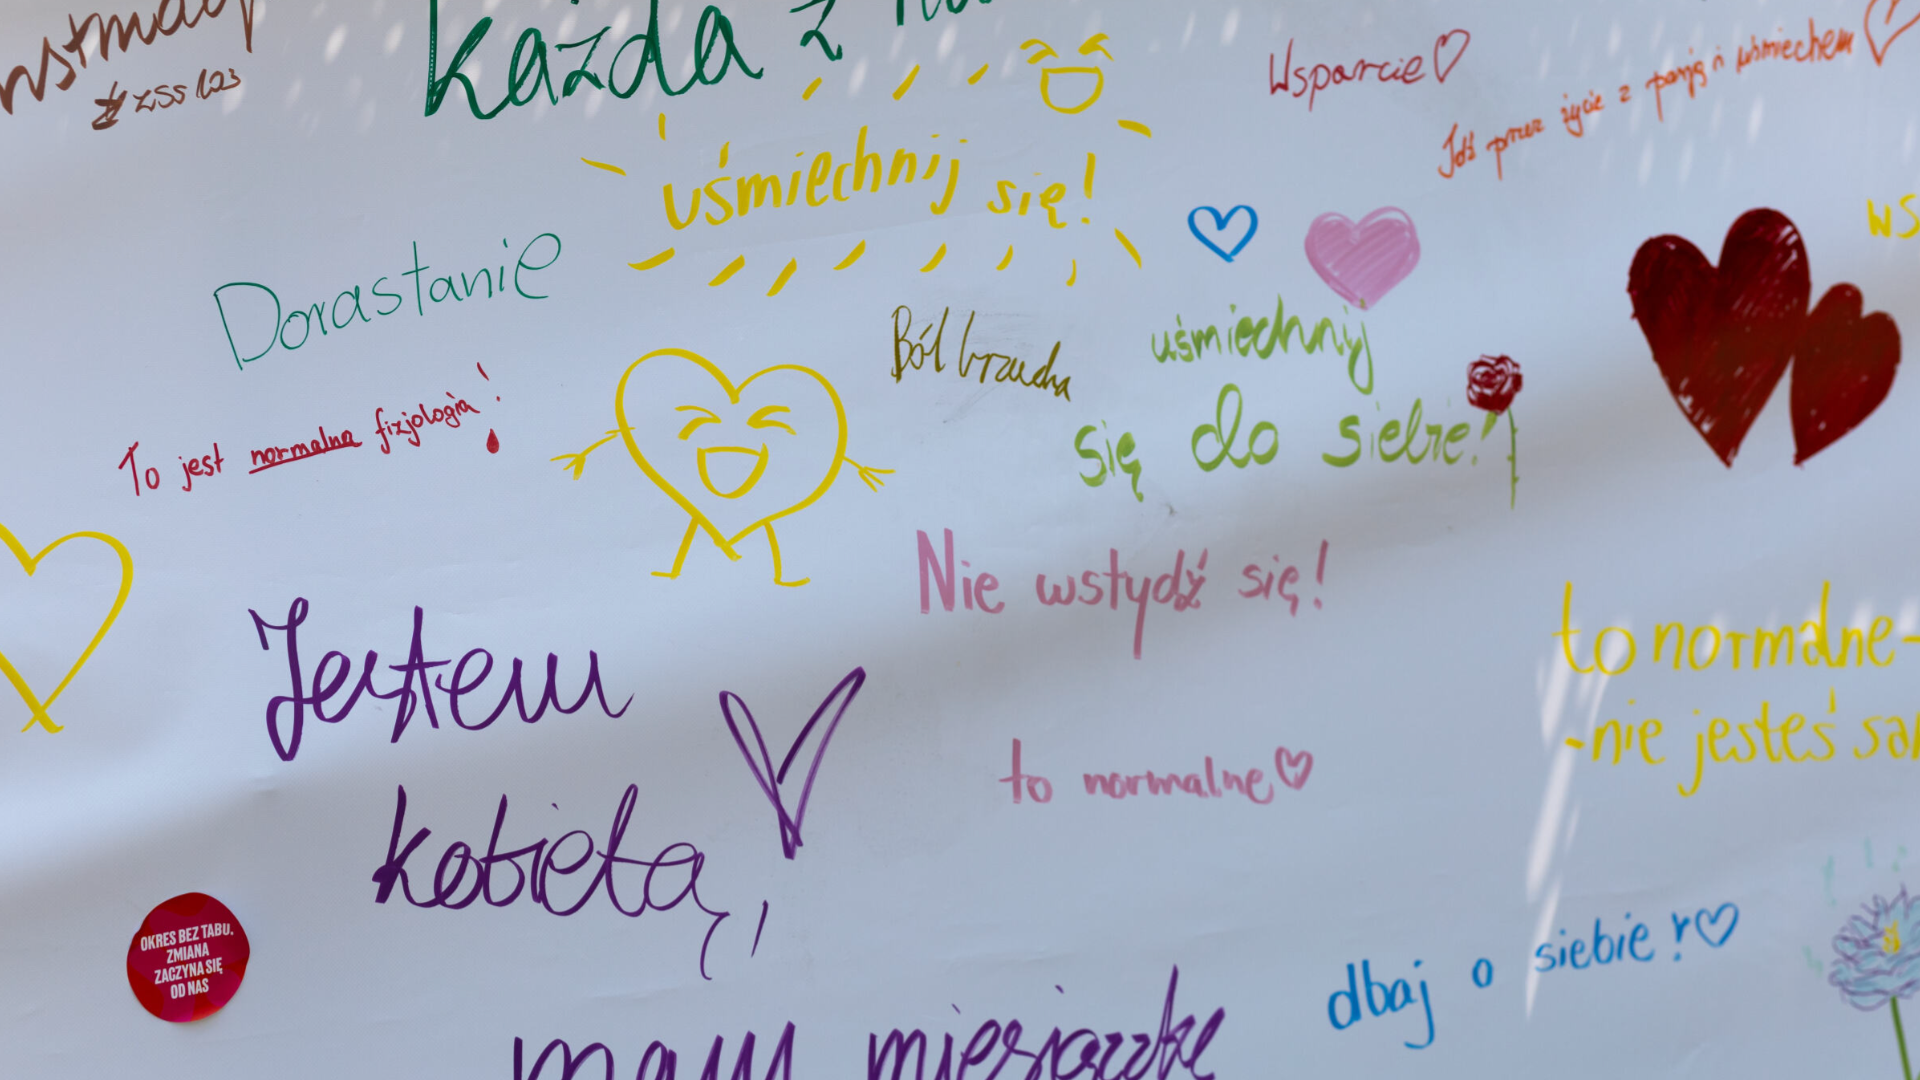 #ZSS 103
Każda z
uśmiechnij się!
Wsparcie
Idź przez życie z pasją i uśmiechem
Dorastanie
Ból brzucha
uśmiechnij
się do siebie!
To jest normalna fizjologia!
Nie wstydź się!
Jestem
kobietą,
mam miesiączkę
to normalne
to normalne-
-nie jesteś
dbaj o siebie!
OKRES BEZ TABU.
ZMIANA
ZACZYNA SIĘ
OD NAS